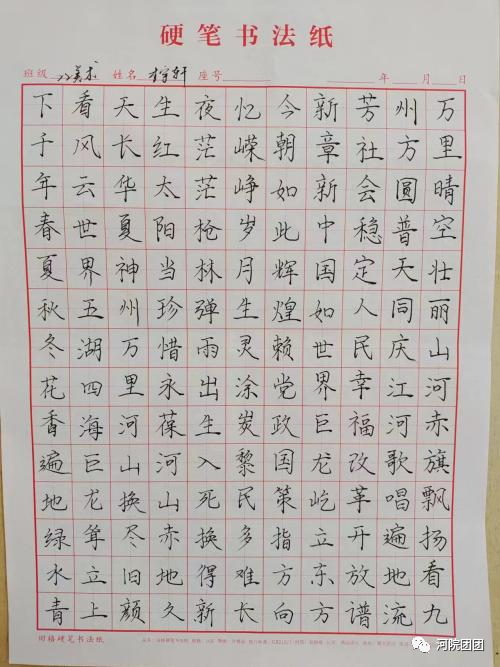 硬笔书法纸
班级 姓名 轩 座号 年 月 日
万里晴空壮丽山河赤旗飘扬看九
州方圆普天同庆江河歌唱遍地流
芳社会稳定人民幸福改革开放谱
新章新中国如世界巨龙屹立东方
今朝如此辉煌赖党政国策指方向
忆嵘峥岁月生灵涂炭黎民多难长
夜茫茫枪林弹雨出生入死换得新
生红太阳当珍惜永葆河山赤地久
天长华夏神州万里河山换尽旧颜
看风云世界五湖四海巨龙耸立上
下千年春夏秋冬花香遍地绿水青
田格硬笔书法纸
河院团团